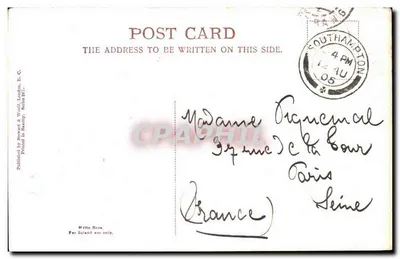 POST CARD
THE ADDRESS TO BE WRITTEN ON THIS SIDE.
SOUTHAMPTON
4 PM
AU
05
Madame
37 rue de la Tour
Paris
Seine
(France)
Published by Stewart & Woolf, London, E.C.
Printed in
Write Here.
For Inland use only.